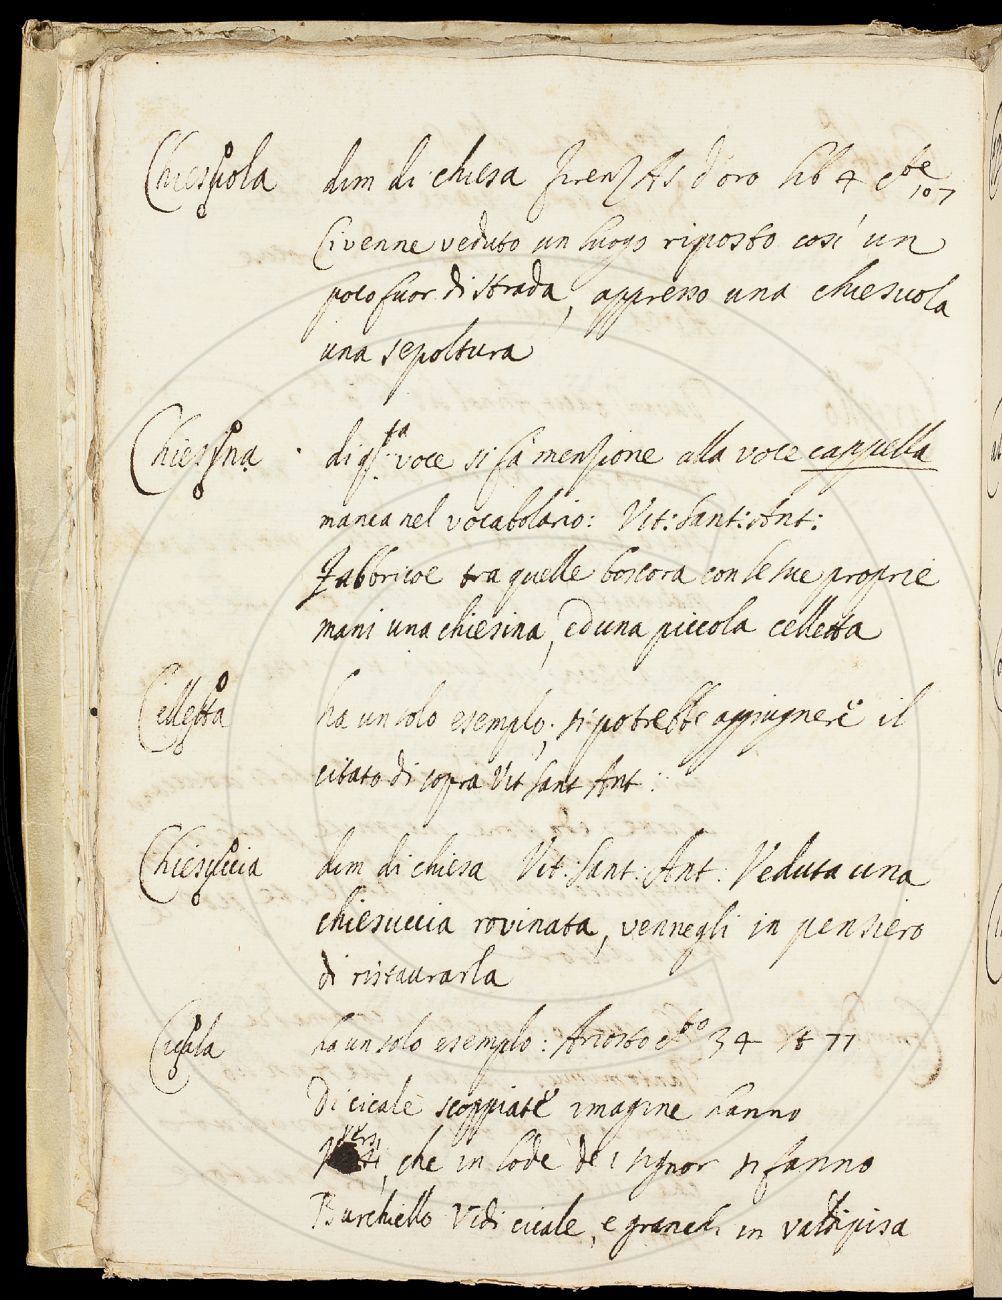 Chiesuola dim di chiesa Firenz As d'oro lib 4 cte 107
Ci venne veduto un luogo riposto così un
poco fuor di strada, appresso una chiesuola
una sepoltura
Chiesina di qsta voce si fà menzione alla voce cappella
manca nel vocabolario: Vit: Sant: Ant:
Fabbricoe tra quelle boscora con le sue proprie
mani una chiesina, ed una piccola celletta
Celletta ha un solo esempio; si potrebbe appiugnere il
citato di sopra Vit Sant Ant:
Chiesuccia dim di chiesa Vit: Sant: Ant: Veduta una
chiesuccia rovinata, vennegli in pensiero
di ristaurarla
Cicala ha un solo esempio: Ariosto cto 34 st 77
Di cicale scoppiate imagine hanno
versi, che in lode de i signor si fanno
Burchiello Vidi cicale, e granchi in Valdipisa